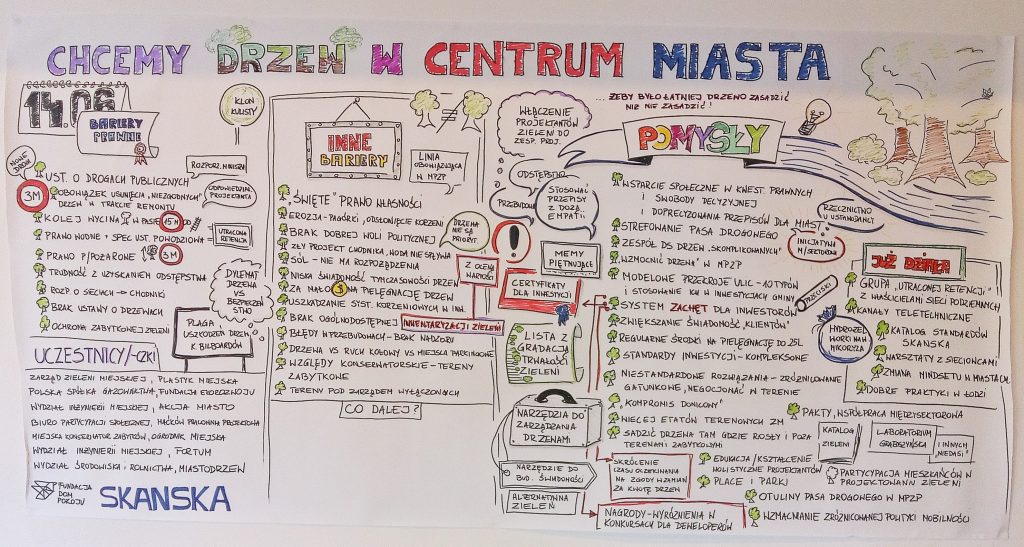 CHCEMY DRZEW W CENTRUM MIASTA
14.06
BARIERY
PRAWNE
KLON
KULISTY
NOWE
DROGI
ROZPORZ. MINISTRA
UST. O DROGACH PUBLICZNYCH
3M
OBOWIĄZEK USUNIĘCIA „NIEZGODNYCH"
DRZEW W TRAKCIE REMONTU
ODPOWIEDZIAL.
PROJEKTANTA
KOLEJ WYCINA W PASIE 15M OD
PRAWO WODNE + SPEC UST. POWODZIOWA
UTRACONA
RETENCJA
PRAWO P/POŻAROWE 3M
TRUDNOŚĆ Z UZYSKANIEM ODSTĘPSTWA
ROZP. O SIECIACH → CHODNIKI
BRAK USTAWY O DRZEWACH
OCHRONA ZABYTKOWEJ ZIELENI
DYLEMAT
DRZEWA
VS
BEZPIECZEŃ
STWO
PLAGA
USZKODZEŃ DRZEW
K. BILBOARDÓW
UCZESTNICY/-CZKI
ZARZĄD ZIELENI MIEJSKIEJ, PLASTYK MIEJSKA
POLSKA SPÓŁKA GAZOWNICTWA, FUNDACJA EKOROZWOJU
WYDZIAŁ INŻYNIERII MIEJSKIEJ, AKCJA MIASTO
BIURO PARTYCYPACJI SPOŁECZNEJ, MAĆKÓW PRACOWNIA PROJEKTOWA
MIEJSKA KONSERWATOR ZABYTKÓW, OGRODNIK MIEJSKA
WYDZIAŁ INŻYNIERII MIEJSKIEJ, FORTUM
WYDZIAŁ ŚRODOWISKA I ROLNICTWA, MIASTODRZEW
FUNDACJA
DOM
POKOJU
SKANSKA
INNE
BARIERY
LINIA
OBOWIĄZUJĄCA
W MPZP
„ŚWIĘTE" PRAWO WŁASNOŚCI
EROZJA - PAGÓRKI, ODSŁONIĘCIE KORZENI
BRAK DOBREJ WOLI POLITYCZNEJ
DRZEWA
NIE SĄ
PRIORYT.
ZŁY PROJEKT CHODNIKA, WODA NIE SPŁYWA
SÓL - NIE MA ROZPORZĄDZENIA
NISKA ŚWIADOMOŚĆ TYMCZASOWOŚCI DRZEW
ZA MAŁO $ NA PIELĘGNACJĘ DRZEW
USZKADZANIE SYST. KORZENIOWYCH W INW.
BRAK OGÓLNODOSTĘPNEJ INWENTARYZACJI ZIELENI
Z OCENĄ
WARTOŚCI
BŁĘDY W PRZEBUDOWACH - BRAK NADZORU
DRZEWA VS RUCH KOŁOWY VS MIEJSCA PARKINGOWE
WZGLĘDY KONSERWATORSKIE - TERENY
ZABYTKOWE
TERENY POD ZARZĄDEM WYŁĄCZONYCH
CO DALEJ?
WŁĄCZENIE
PROJEKTANTÓW
ZIELENI DO
ZESP. PROJ.
ODSTĘPSTWO
PRZEBUDOWA
STOSOWAĆ
PRZEPISY
Z DOZĄ
EMPATII
!
MEMY
PIĘTNUJĄCE
CERTYFIKATY
DLA INWESTYCJI
LISTA Z
GRADACJĄ
TRWAŁOŚCI
ZIELENI
NARZĘDZIA DO
ZARZĄDZANIA
DRZEWAMI
NARZĘDZIE DO
BUD. ŚWIADOMOŚCI
ALTERNATYWNA
ZIELEŃ
...ŻEBY BYŁO ŁATWIEJ DRZEWO ZASADZIĆ
NIŻ NIE ZASADZIĆ!
POMYSŁY
WSPARCIE SPOŁECZNE W KWEST. PRAWNYCH
SWOBODY DECYZYJNEJ
I DOPRECYZOWANIA PRZEPISÓW DLA MIAST
STREFOWANIE PASA DROGOWEGO
ZESPÓŁ DS DRZEW „SKOMPLIKOWANYCH"
WZMOCNIĆ DRZEWA W MPZP
MODELOWE PRZEKROJE ULIC - 10 TYPÓW
I STOSOWANIE ICH W INWESTYCJACH GMINY
SYSTEM ZACHĘT DLA INWESTORÓW
ZWIĘKSZANIE ŚWIADOMOŚĆ „KLIENTÓW"
REGULARNE ŚRODKI NA PIELĘGNACJĘ DO 25L
STANDARDY INWESTYCJI - KOMPLEKSOWE
NIESTANDARDOWE ROZWIĄZANIA - ZRÓŻNICOWANIE
GATUNKOWE, NEGOCJOWAĆ W TERENIE
„KOMPROMIS DONICOWY"
WIĘCEJ ETATÓW TERENOWYCH ZM
SADZIĆ DRZEWA TAM GDZIE ROSŁY I POZA
TERENAMI ZABYTKOWYMI
SKRÓCENIE
CZASU OCZEKIWANIA
NA ZGODY W ZAMIAN
ZA KWOTĘ DRZEW
EDUKACJA/KSZTAŁCENIE
HOLISTYCZNE PROJEKTANTÓW
PLACE I PARKI
NAGRODY-WYRÓŻNIENIA W
KONKURSACH DLA DEWELOPERÓW
PAKTY, WSPÓŁPRACA MIĘDZYSEKTOROWA
KATALOG
ZIELENI
LABORATORIUM
GRABISZYŃSKA
I INNYCH
PARTYCYPACJA MIESZKAŃCÓW W
PROJEKTOWANIU ZIELENI
OTULINY PASA DROGOWEGO W MPZP
WZMACNIANIE ZRÓŻNICOWANEJ POLITYKI MOBILNOŚCI
RZECZNICTWO
U USTAWODAWC.
INICJATYW
M/SEKTOROW
HYDROŻEL
WORKI NAWAD.
MIKORYZA
JUŻ DZIAŁA
GRUPA „UTRACONEJ RETENCJI"
Z WŁAŚCICIELAMI SIECI PODZIEMNYCH
KANAŁY TELETECHNICZNE
KATALOG STANDARDÓW
SKANSKA
WARSZTATY Z SIECIOWCAMI
ZMIANA MINDSETU W MIASTACH
DOBRE PRAKTYKI W ŁODZI